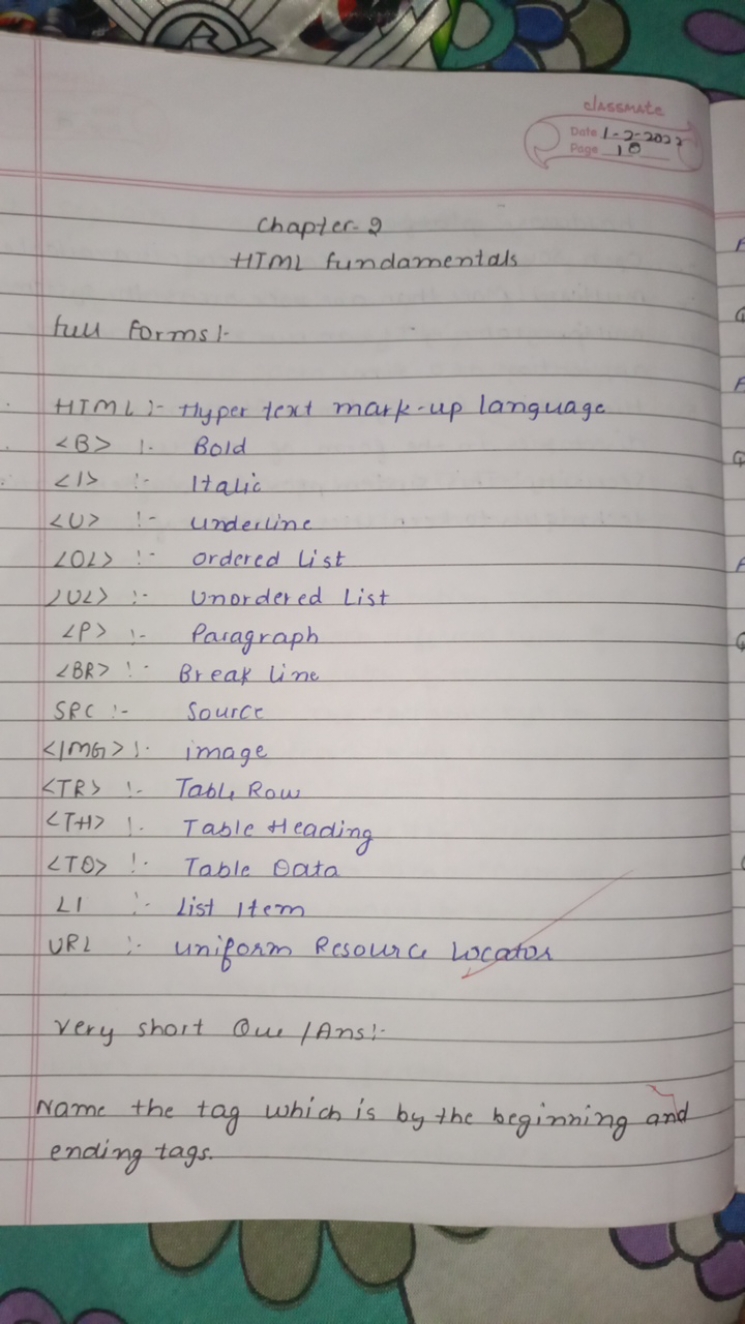 classmate
Date 1-2-2022
Page 10
Chapter-2
HTML fundamentals
full forms:-
HTML :- Hyper text mark-up language
<B> :- Bold
<I> :- Italic
<U> :- underline
<OL> :- ordered List
<UL> :- Unordered List
<P> :- Paragraph
<BR> :- Break line
SRC :- Source
<IMG> :- image
<TR> :- Table Row
<TH> :- Table Heading
<TD> :- Table Data
LI :- List Item
URL :- uniform Resource Locator
Very short Que/Ans:-
Name the tag which is by the beginning and
ending tags.